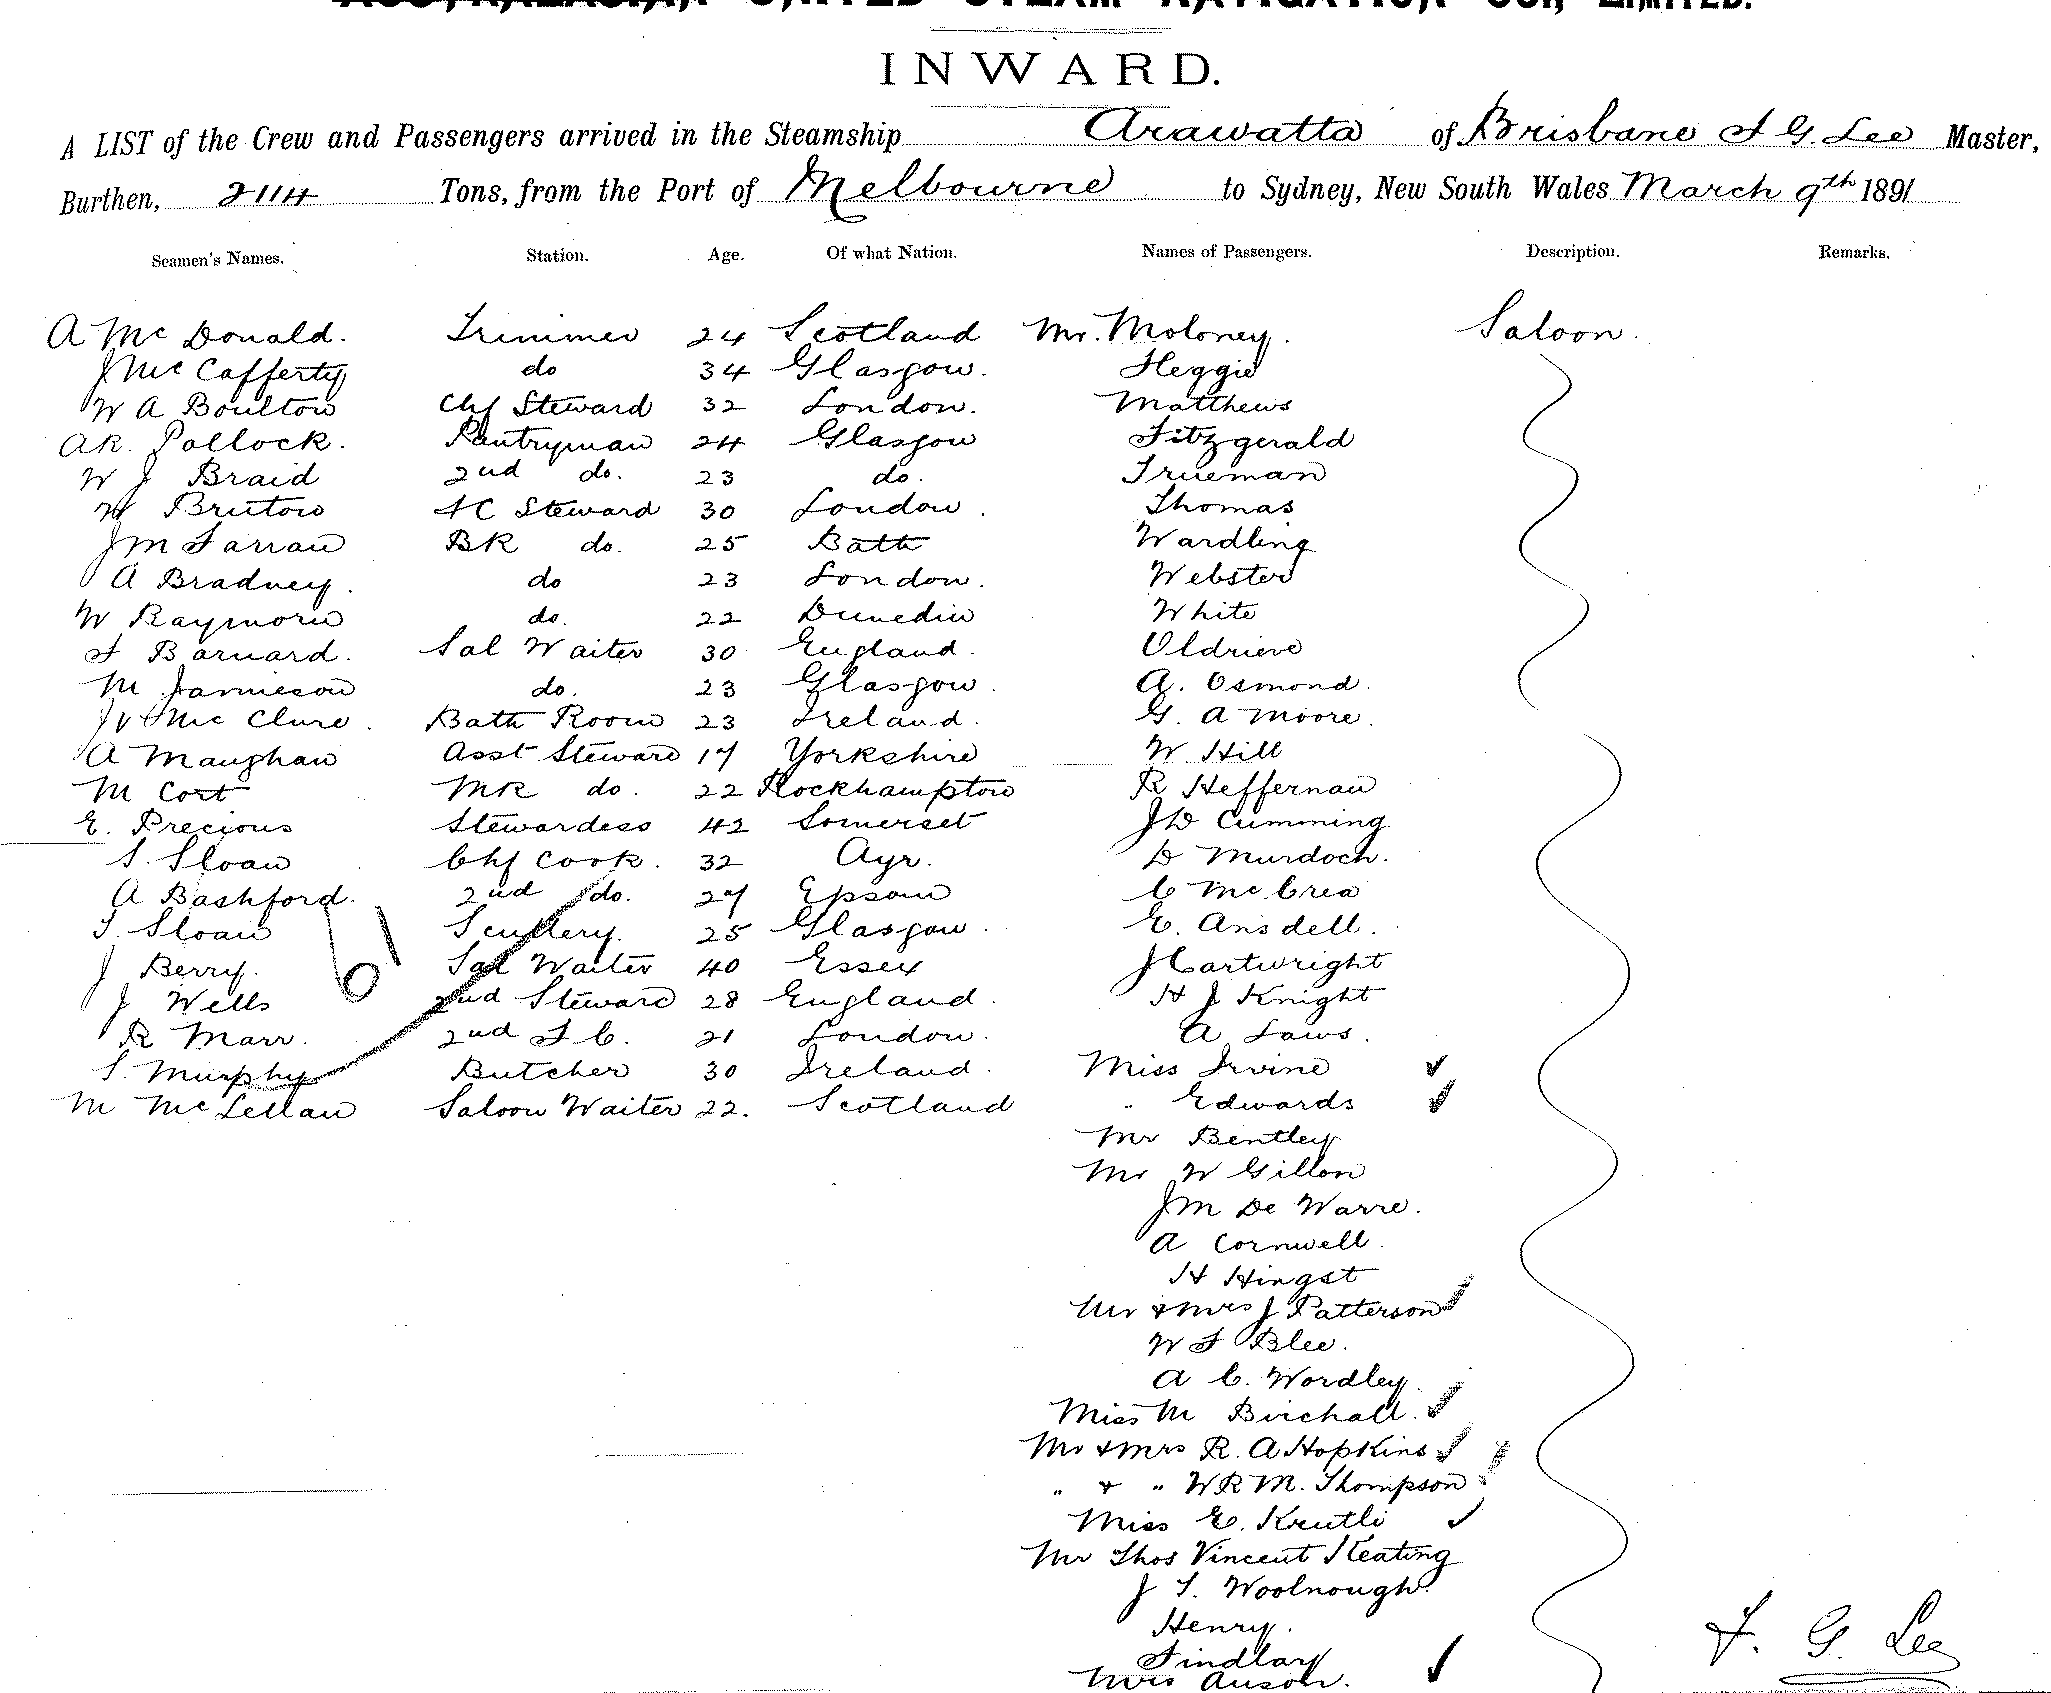 AUSTRALASIAN UNITED STEAM NAVIGATION CO., LIMITED.
INWARD.
A LIST of the Crew and Passengers arrived in the Steamship Arawatta of Brisbane F G. Lee Master,
Burthen, 2114 Tons, from the Port of Melbourne to Sydney, New South Wales March 9th 1891
Seamen's Names. Station. Age. Of what Nation. Names of Passengers. Description. Remarks.
A McDonald. Trimmer 24 Scotland Mr. Moloney. Saloon.
J McCafferty do 34 Glasgow. Heggie
W A Boulton Chf Steward 32 London. Matthews
AR. Pollock. Pantryman 24 Glasgow Fitzgerald
W J Braid 2nd do. 23 do. Trueman
W Bruton FC Steward 30 London. Thomas
J M Farran BR do. 25 Bath Wardling
A Bradney. do 23 London. Webster
W Raymond do. 22 Dunedin White
F Barnard. Sal Waiter 30 England. Oldrieve
M Jamieson do. 23 Glasgow. A. Osmond.
Mc Clure. Bath Room 23 Ireland. G. A Moore.
A Maughan Asst Steward 17 Yorkshire W. Hill
M Cort MR do. 22 Rockhampton R Heffernan
E. Precious Stewardess 42 Somerset J D Cumming
S. Sloan Chf Cook. 32 Ayr. D Murdoch.
A Bashford. 2nd do. 27 Epsom C McCrea
T. Sloan Scullery. 25 Glasgow. E. Ansdell.
J Berry. Sal Waiter 40 Essex J Cartwright
J Wells 2nd Steward 28 England. H J Knight
R Marr. 2nd F C. 21 London. A Laws.
S. Murphy Butcher 30 Ireland. Miss Irvine
M McLellan Saloon Waiter 22. Scotland " Edwards
61
Mr Bentley
Mr W Gillon
J M De Warre.
A Cornwell.
H Hingst
Mr & Mrs J Patterson
W F Blee.
A C. Wordley.
Miss M Birchall.
Mr & Mrs R. A Hopkins
" & " W R M. Thompson
Miss E. Krutli
Mr Thos Vincent Keating
J T. Woolnough.
Henry.
Findlay
Mrs Anson.
F. G. Lee